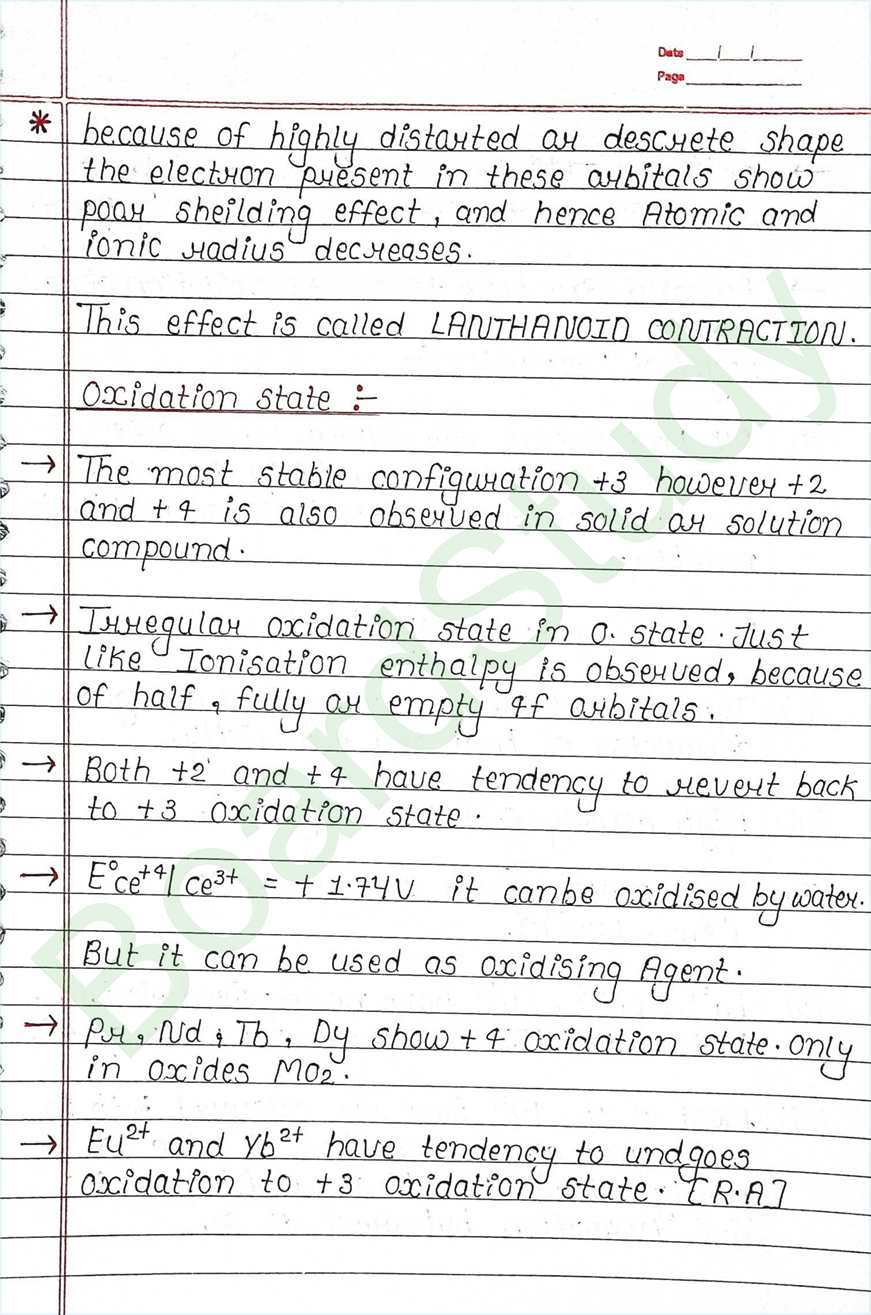 Date __/__/__
Page ________
* because of highly distorted or descrete shape
the electron present in these orbitals show
poor sheilding effect, and hence Atomic and
ionic radius decreases.
This effect is called LANTHANOID CONTRACTION.
Oxidation state :-
→ The most stable configuration +3 however +2
and +4 is also observed in solid or solution
compound.
→ Irregular oxidation state in O. state. Just
like Ionisation enthalpy is observed, because
of half, fully or empty 4f orbitals.
→ Both +2 and +4 have tendency to revert back
to +3 oxidation state.
→ E°ce⁺⁴/ce³⁺ = + 1.74V it canbe oxidised by water.
But it can be used as oxidising Agent.
→ Pr, Nd, Tb, Dy show +4 oxidation state. Only
in oxides MO₂.
→ Eu²⁺ and Yb²⁺ have tendency to undgoes
oxidation to +3 oxidation state. [R.A]
BoardStudy